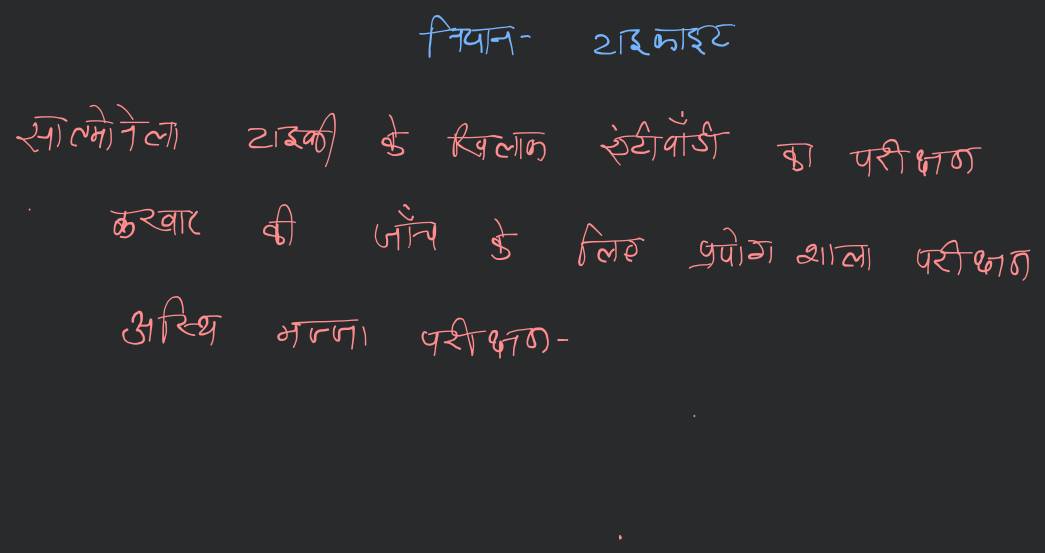 नियान- टाइफाइट
साल्मोनेला टाइफी के खिलाफ एंटीबॉडी का परीक्षण
करवार की जाँच के लिए प्रयोग शाला परीक्षण
अस्थि मज्जा परीक्षण-